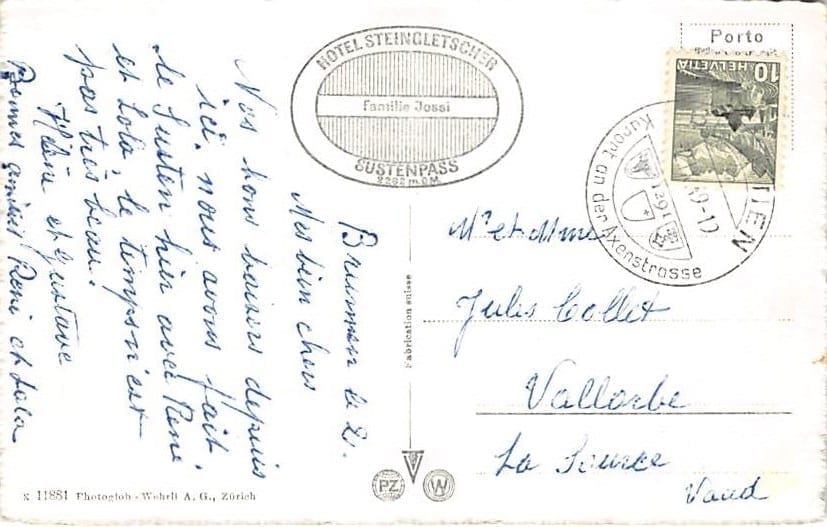 Brunnen le 2.
Mes bien chers
Nos bons baisers depuis
ici. nous avons fait
le Susten hier avec René
et Lola le temps n'est
pas très beau.
Hélène et Gustave
Bonnes amitiés René et Lola
HOTEL STEINGLETSCHER
Familie Jossi
SUSTENPASS
2262 m.ü.M.
Porto
HELVETIA
10
Kurort an der Axenstrasse
1291
Mr et Mme
Jules Collet
Vallorbe
La Source
Vaud
Fabrication suisse
PZ
W
K 11881 Photoglob - Wehrli A. G., Zürich